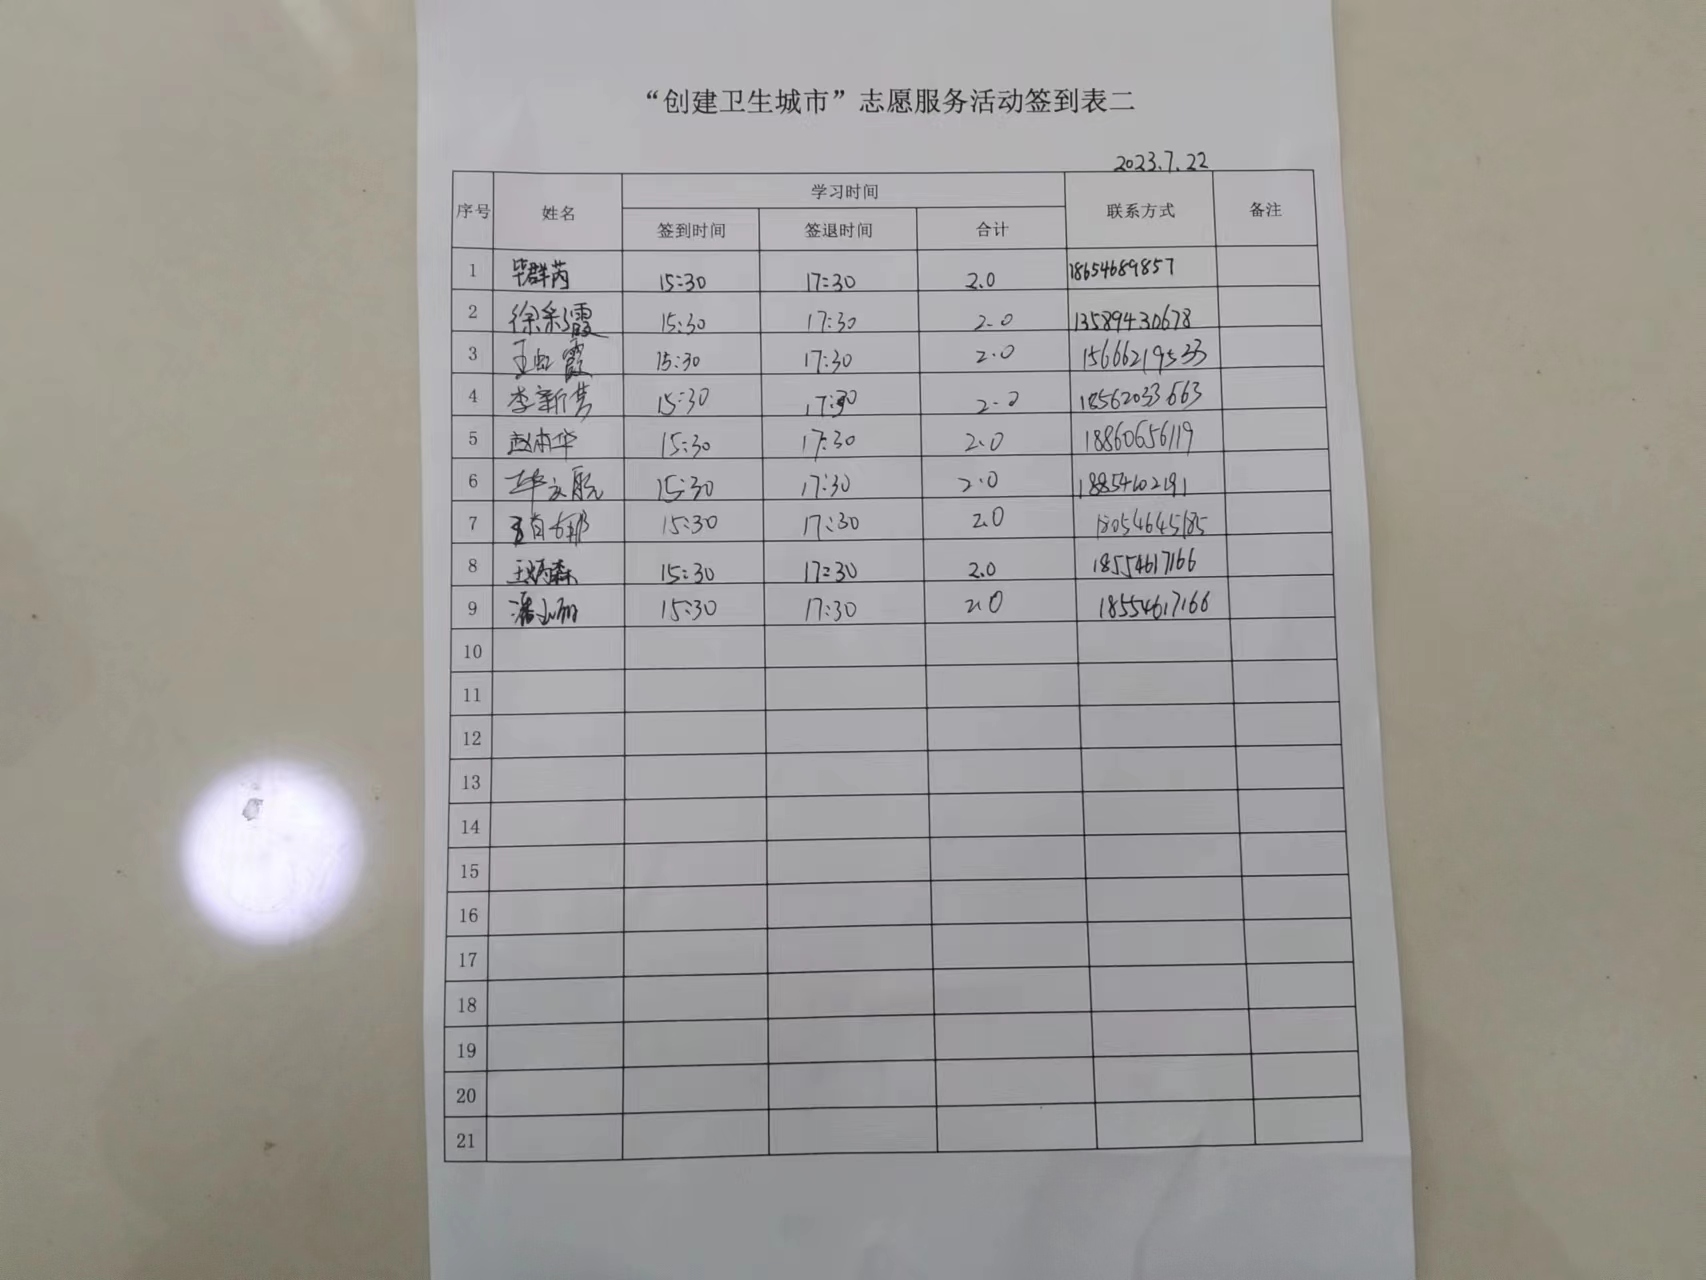 “创建卫生城市”志愿服务活动签到表二
2023.7.22
序号 姓名 学习时间 联系方式 备注
签到时间 签退时间 合计
1 毕群芮 15:30 17:30 2.0 18654689857
2 徐彩霞 15:30 17:30 2.0 13589430678
3 王虹霞 15:30 17:30 2.0 15666219533
4 李新 15:30 17:30 2.0 18562033663
5 赵本华 15:30 17:30 2.0 18860656119
6 毕文航 15:30 17:30 2.0 18854602191
7 王肖郁 15:30 17:30 2.0 18054645185
8 王炳森 15:30 17:30 2.0 18554617166
9 潘 15:30 17:30 2.0 18554617166
10
11
12
13
14
15
16
17
18
19
20
21